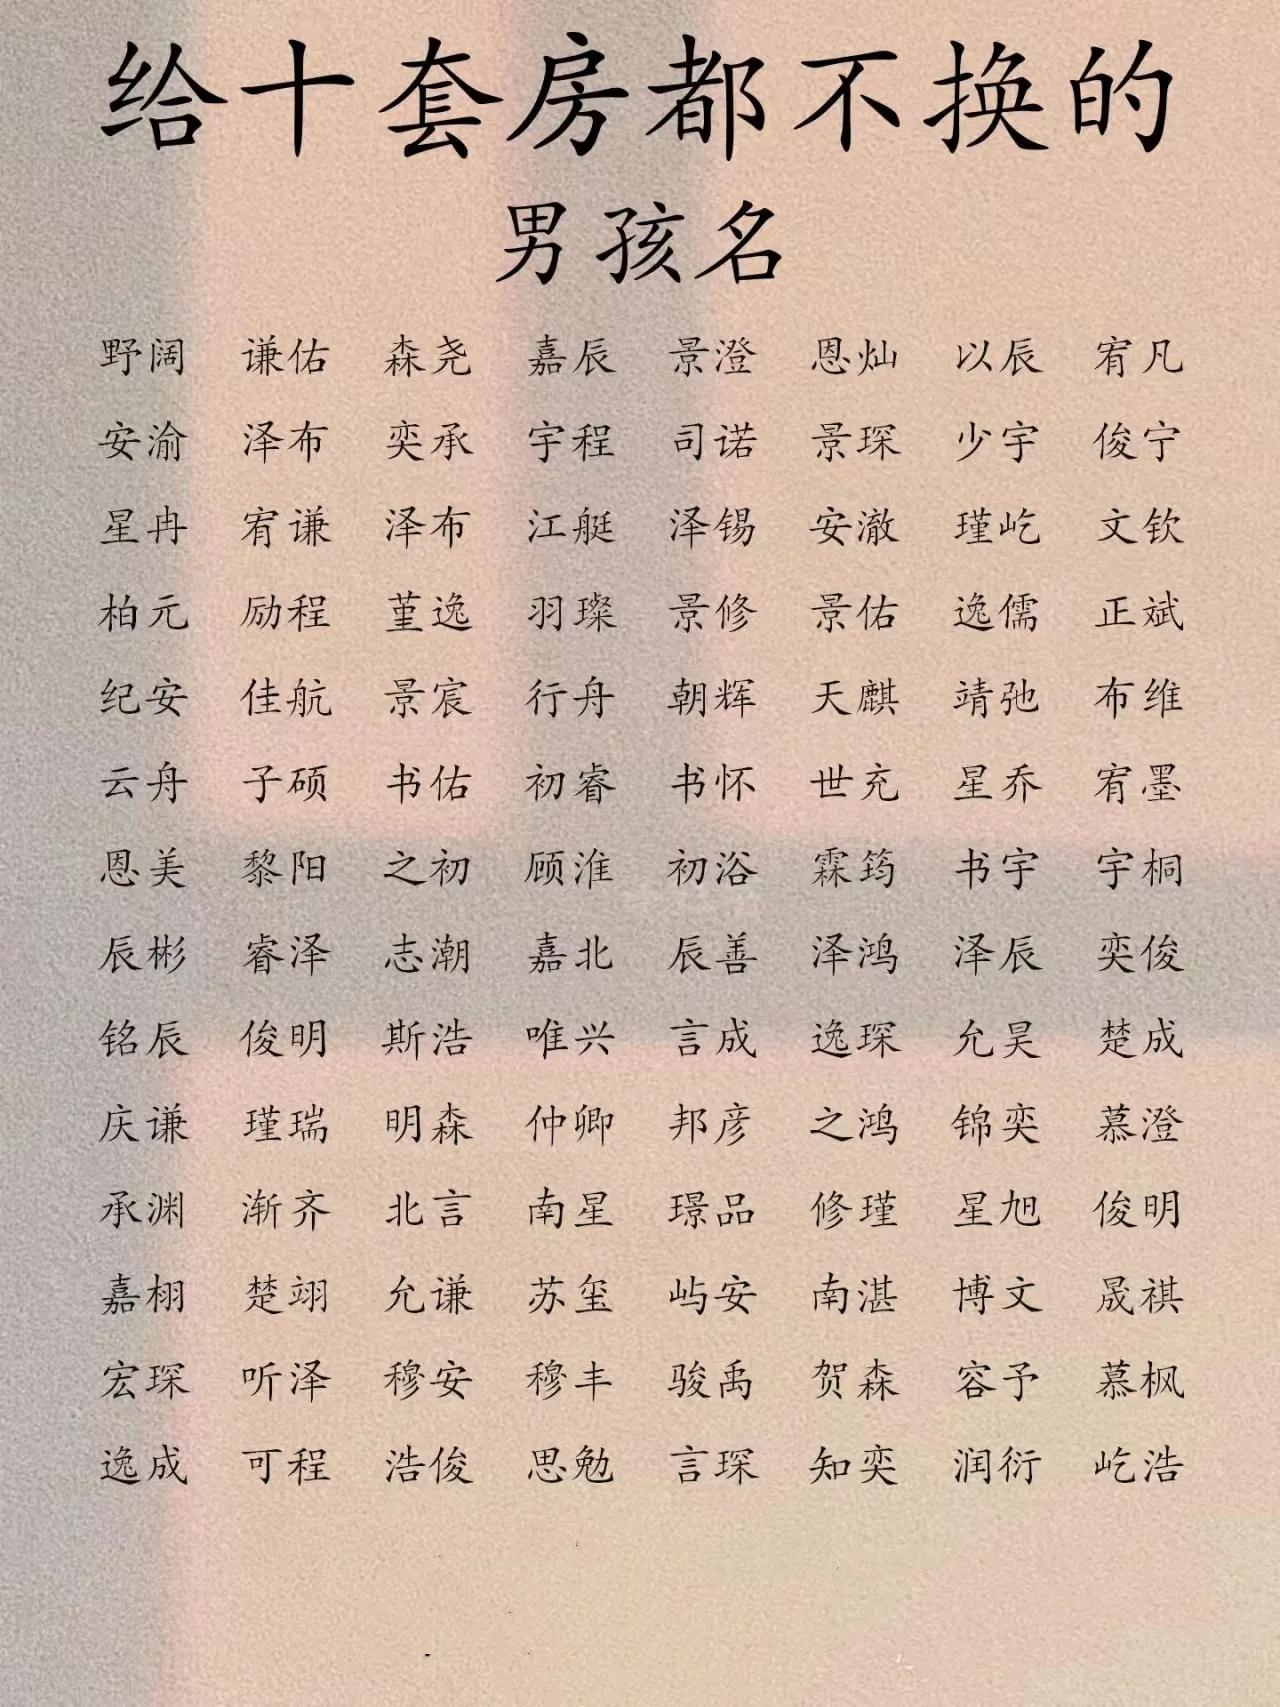 给十套房都不换的
男孩名
野阔 谦佑 森尧 嘉辰 景澄 恩灿 以辰 宥凡
安渝 泽布 奕承 宇程 司诺 景琛 少宇 俊宁
星冉 宥谦 泽布 江艇 泽锡 安澈 瑾屹 文钦
柏元 励程 堇逸 羽璨 景修 景佑 逸儒 正斌
纪安 佳航 景宸 行舟 朝辉 天麒 靖弛 布维
云舟 子硕 书佑 初睿 书怀 世充 星乔 宥墨
恩美 黎阳 之初 顾淮 初浴 霖筠 书宇 宇桐
辰彬 睿泽 志潮 嘉北 辰善 泽鸿 泽辰 奕俊
铭辰 俊明 斯浩 唯兴 言成 逸琛 允昊 楚成
庆谦 瑾瑞 明森 仲卿 邦彦 之鸿 锦奕 慕澄
承渊 渐齐 北言 南星 璟品 修瑾 星旭 俊明
嘉栩 楚翊 允谦 苏玺 屿安 南湛 博文 晟祺
宏琛 听泽 穆安 穆丰 骏禹 贺森 容予 慕枫
逸成 可程 浩俊 思勉 言琛 知奕 润衍 屹浩